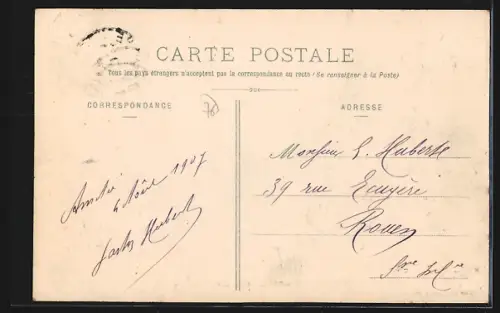 CARTE POSTALE
Tous les pays étrangers n'acceptent pas la correspondance au recto (Se renseigner à la Poste)
CORRESPONDANCE
ADRESSE
76
Amitié
4 Août 1907
Hubert
Monsieur G. Huberts
39 rue Ecuyère
Rouen
Sne Infre